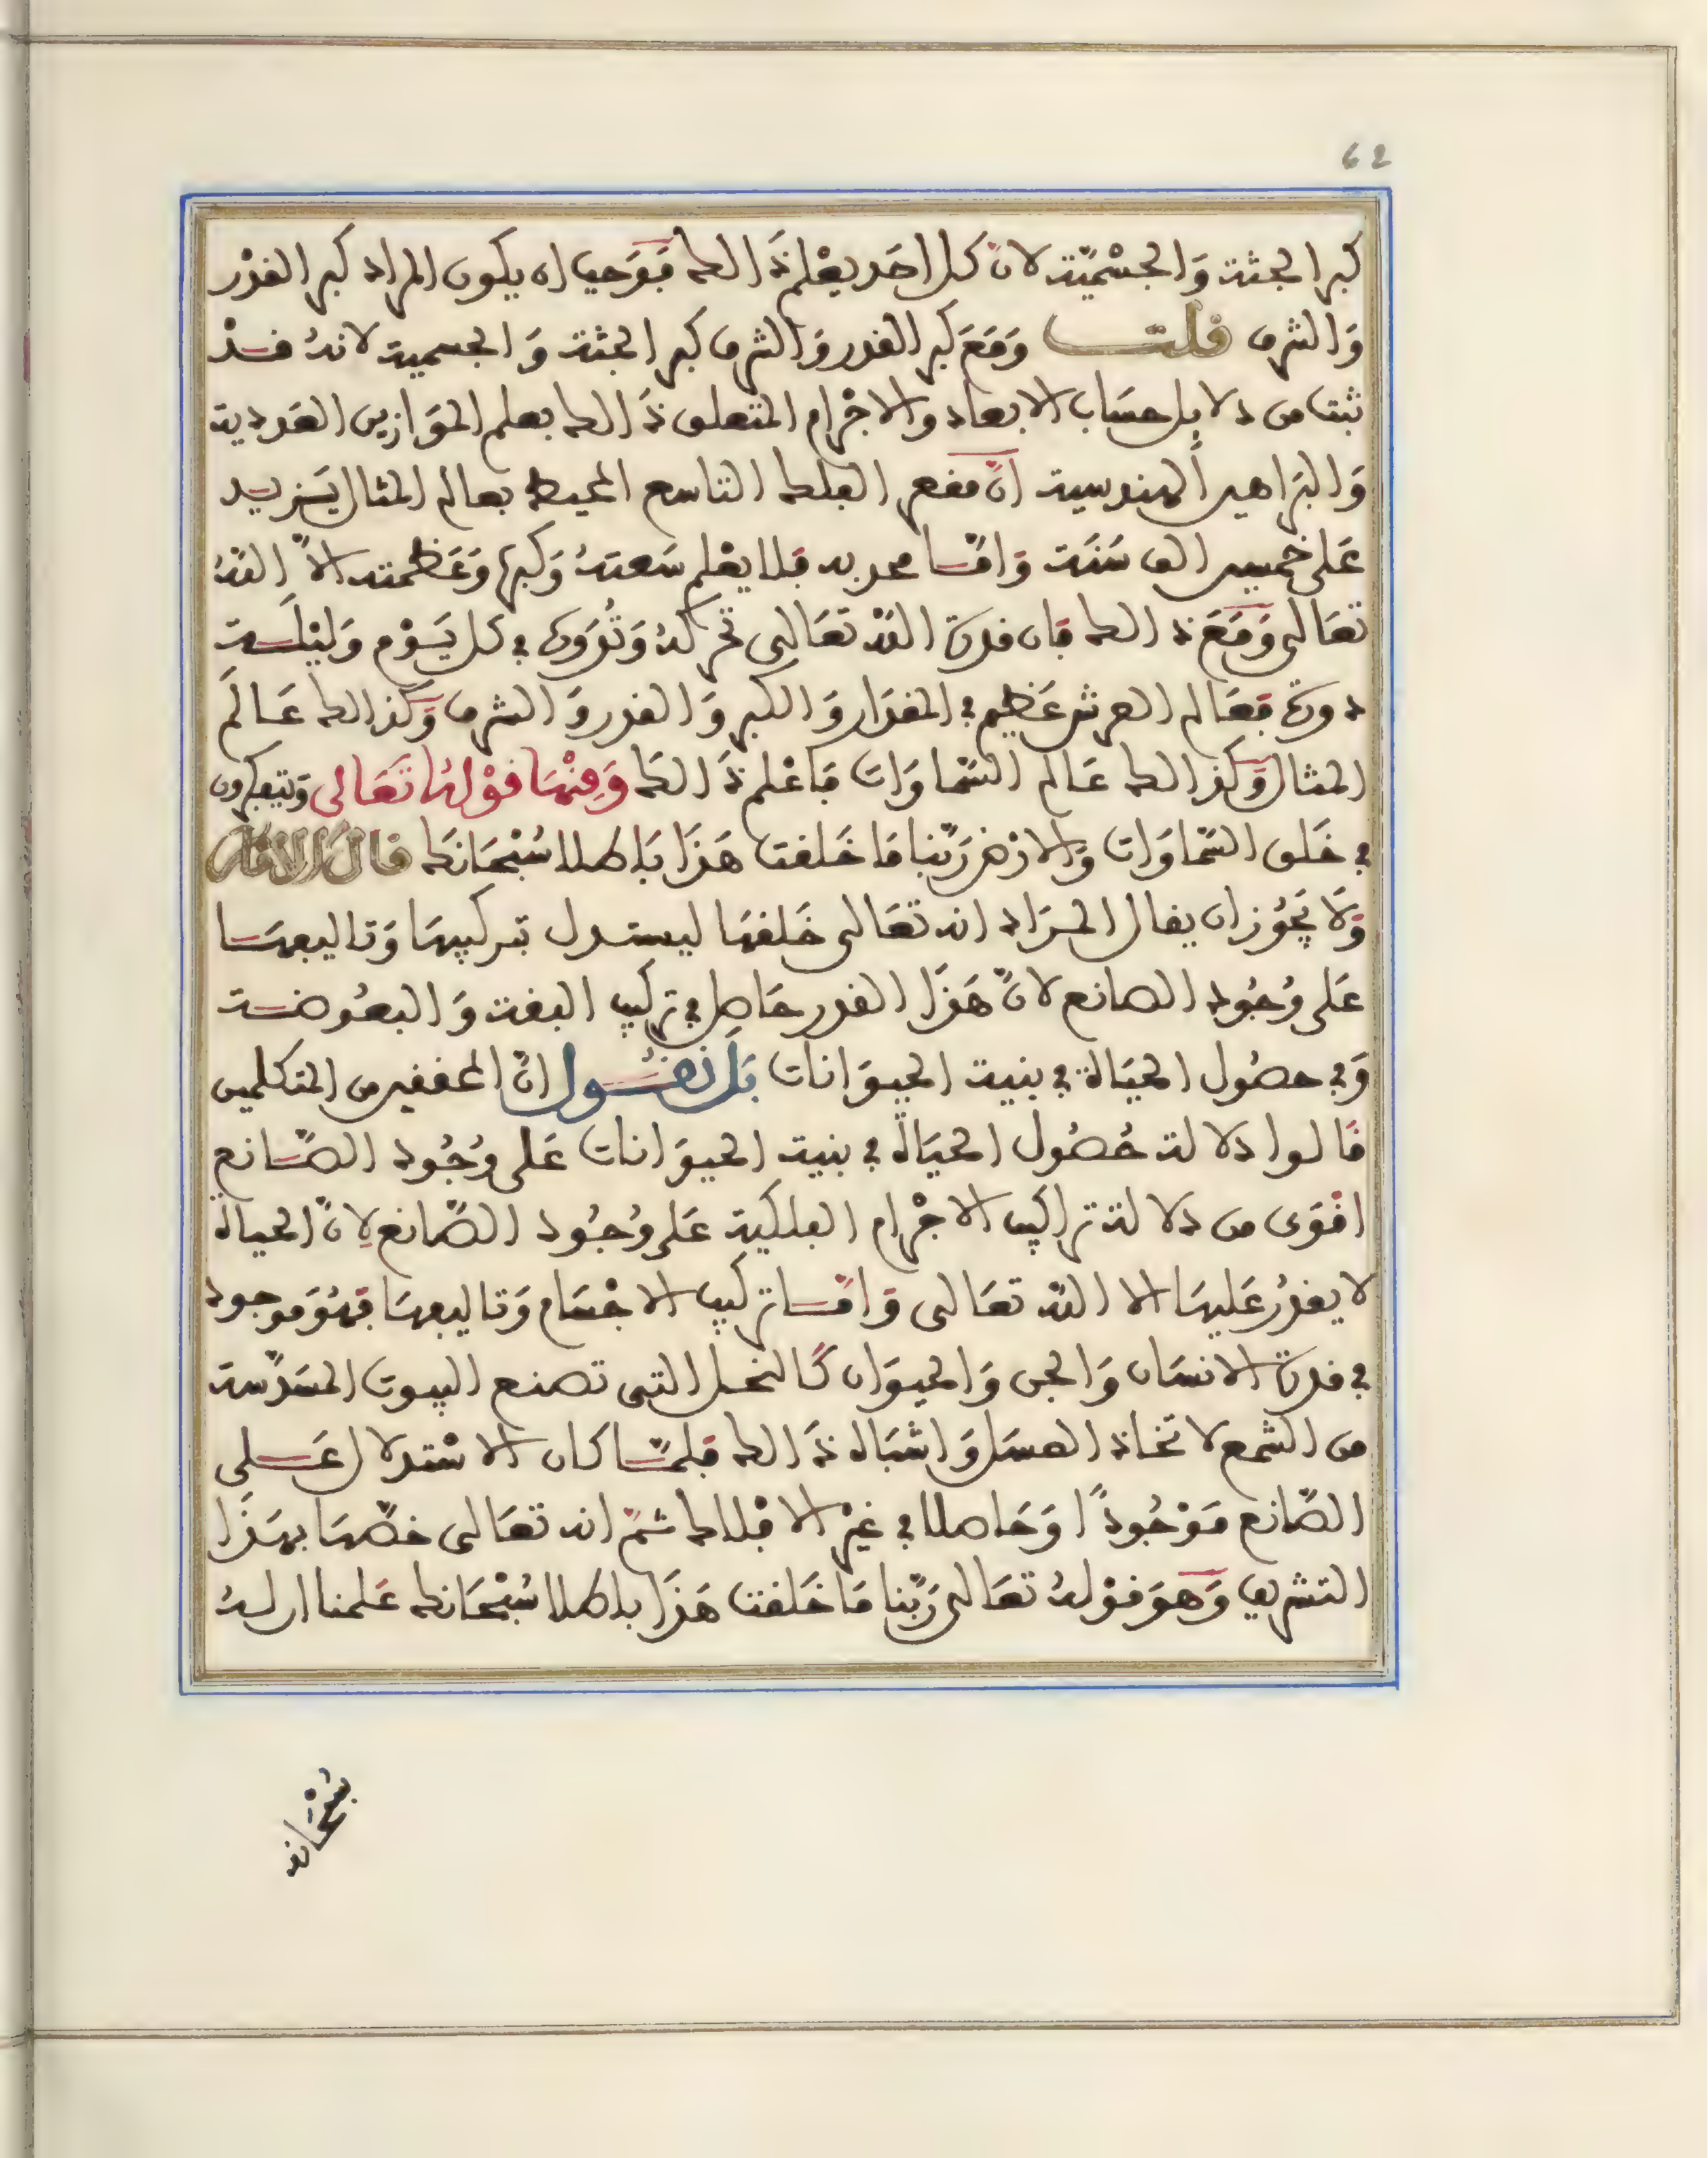 62
كبر الجثة وَالجسْمِيّة لانّ كل احَد يعْلم ذَالك فوَجب ان يكون المراد كبر القدْر
وَالشرف قلت وَمَعَ كبر القدر وَالشرف كبر الجثة وَالجسمية لانهُ قدْ
ثبت من دلايل حسَاب الابعاد والاجْرام المتعلق ذَالك بعلم الموَازين العَددية
وَالبرَاهين الهندسية انّ مقعر الفلك التاسع المحيط بعالم المثال يَزيد
عَلى خمسين الف سَنَة وَامّا محدبه فلا يعْلم سَعتهُ وَكبرهَا وَعَظمته الاّ اللّهُ
تعَالى وَمَعَ ذالك فان قدرة اللّه تعَالى تحركهُ وَتُدَوره في كل يَوْم وَليْلَة
دورة فعَالم العرش عَظيم في المقدَار وَالكبر وَالقدر وَالشرف وَكذالك عَالَم
المثال وَكذالك عَالم السّمَاوَات فاعْلم ذَالكَ وَمِنْهَا قوْلهُ تَعَالى وَيتفكرون
في خَلق السّماوَات وَالارْض رَبّنا مَا خَلقت هَذَا بَاطلا سُبْحَانكَ قال الامام
وَلاَ يَجُوز ان يقال المرَاد انه تعَالى خَلقهَا ليستدل بتركيبهَا وَتاليفهَا
عَلى وُجُود الصانع لانّ هَذَا القدر حَاصل في تركيب البقة وَالبعُوضة
وَفي حصُول الحيَاة في بنية الحيوَانات بَل نقُول انّ المحققين من المتكلمين
قالوا دلالة حُصُول الحيَاة في بنية الحيوَانات عَلى وُجُود الصّانع
اقوَى من دلالة تراكيب الاجْرام الفلكية عَلى وُجُود الصّانع لاِنّ الحياة
لا يقدرُ عَليهَا الا اللّه تعَالى وَامّا تركيب الاجْسَام وَتاليفهَا فهُوَ موجود
في قدرة الانسَان وَالجن وَالحيوَان كَالنحل التي تصنع البيوت المسَدّسة
من الشمع لاتخاذ العسَل وَاشبَاه ذَالك فلمّا كان الاسْتدلال عَلى
الصّانع مَوْجُودًا وَحَاصلا في غيْر الافْلاك ثمّ انه تعَالى خصّهَا بهَذَا
التشريف وَهوَ قوْلهُ تعَالى رَبّنا مَا خَلقت هَذَا باطلا سُبْحَانك عَلمنا ان لهُ
سُبْحَانه